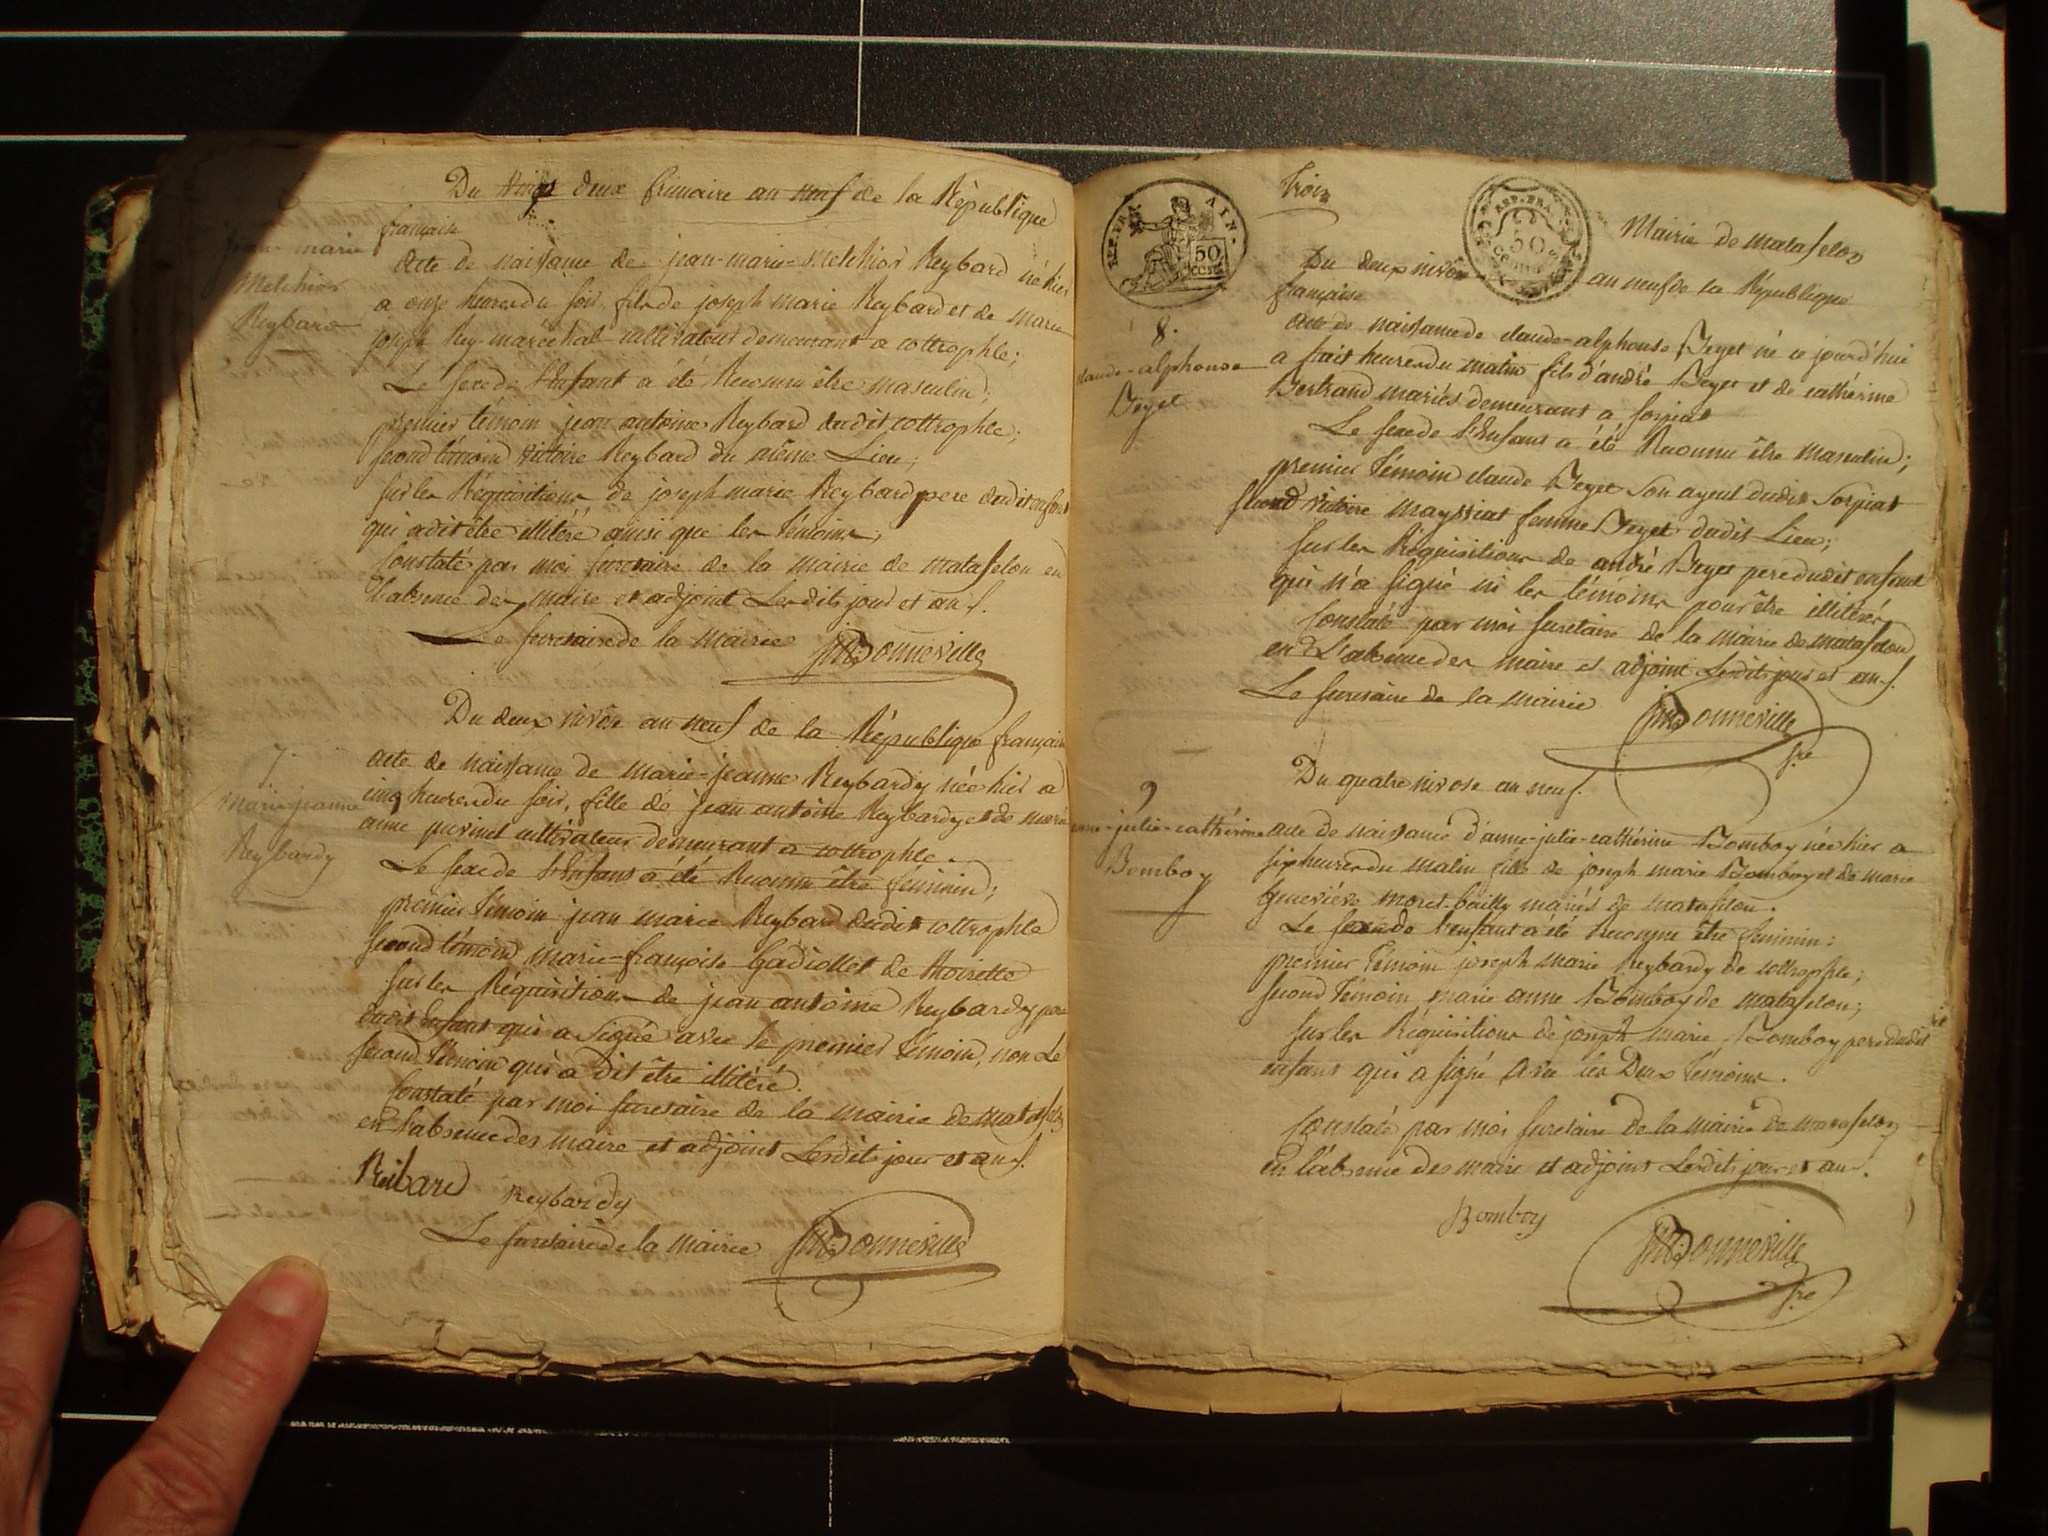 Du Vingt deux frimaire an neuf de la République
française
jean-marie
Melchior
Reybard
acte de naissance de jean-marie-Melchior Reybard né hier
a onze heures du soir, fils de joseph marie Reybard et de marie
joseph Rey-maréchal cultivateurs demeurant a cottrophle;
Le sexe de l'Enfant a été Reconnu être masculin;
premier témoin jean antoine Reybard dudit cottrophle;
second témoin victoire Reybard du même Lieu;
sur les Réquisitions de joseph marie Reybard pere dudit enfant
qui a dit être illitéré ainsi que les témoins;
Constaté par moi secretaire de la mairie de matafelon en
l'absence des maire et adjoint Lesdits jour et an.
Le secretaire de la mairie JMBonneville
Du deux nivôse an neuf de la République française
7.
marie jeanne
Reybardy
acte de naissance de marie-jeanne Reybardy née hier a
cinq heures du soir, fille de jean antoine Reybardy et de marie
anne perinet cultivateurs demeurant a cottrophle.
Le sexe de l'Enfant a été Reconnu être féminin;
premier témoin jean marie Reybard dudit cottrophle
second témoin marie-françoise Gadiollet de thoirette
sur les Réquisitions de jean antoine Reybardy pere
dudit Enfant qui a signé avec le premier témoin, non Le
second témoin qui a dit être illitéré.
Constaté par moi secretaire de la mairie de matafelon
en l'absence des maire et adjoint Lesdits jour et an.
Reibard
Reybardy
Le secretaire de la mairie JMBonneville
REP. FRA. AIN.
50
CENT.
Trois
REP. FRA.
50
Mairie de matafelon
Du deux nivôse an neuf de la République
française
8.
claude-alphonse
Jeyet
acte de naissance de claude-alphonse Jeyet né ce jourd'hui
a huit heures du matin fils d'andré Jeyet et de cathérine
Bertrand mariés demeurant a sorpiat
Le sexe de l'Enfant a été Reconnu être masculin;
premier témoin claude Jeyet son ayeul dudit Sorpiat
second victoire mayssiat femme Jeyet dudit Lieu;
sur les Réquisitions de andré Jeyet pere dudit enfant
qui n'a signé ni les témoins pour être illitérés
Constaté par moi secretaire de la mairie de matafelon
en L'absence des maire et adjoint Lesdits jour et an.
Le secretaire de la mairie JMBonneville
sre
Du quatre nivose an neuf.
9
anne-julie-cathérine
Bomboy
acte de naissance d'anne-julie-cathérine Bomboy née hier a
six heures du matin fille de joseph marie Bomboy et de marie
Geneviève moret-bailly mariés de matafelon.
Le sexe de l'enfant a été reconnu être féminin;
premier témoin joseph marie Reybardy de cottrophle;
second témoin marie anne Bomboy de matafelon;
sur les Réquisitions de joseph marie Bomboy pere dudit
enfant qui a signé avec les Deux témoins.
Constaté par moi secretaire de la mairie de matafelon
en l'absence des maire et adjoint Lesdits jour et an.
Bomboy
JMBonneville
sre